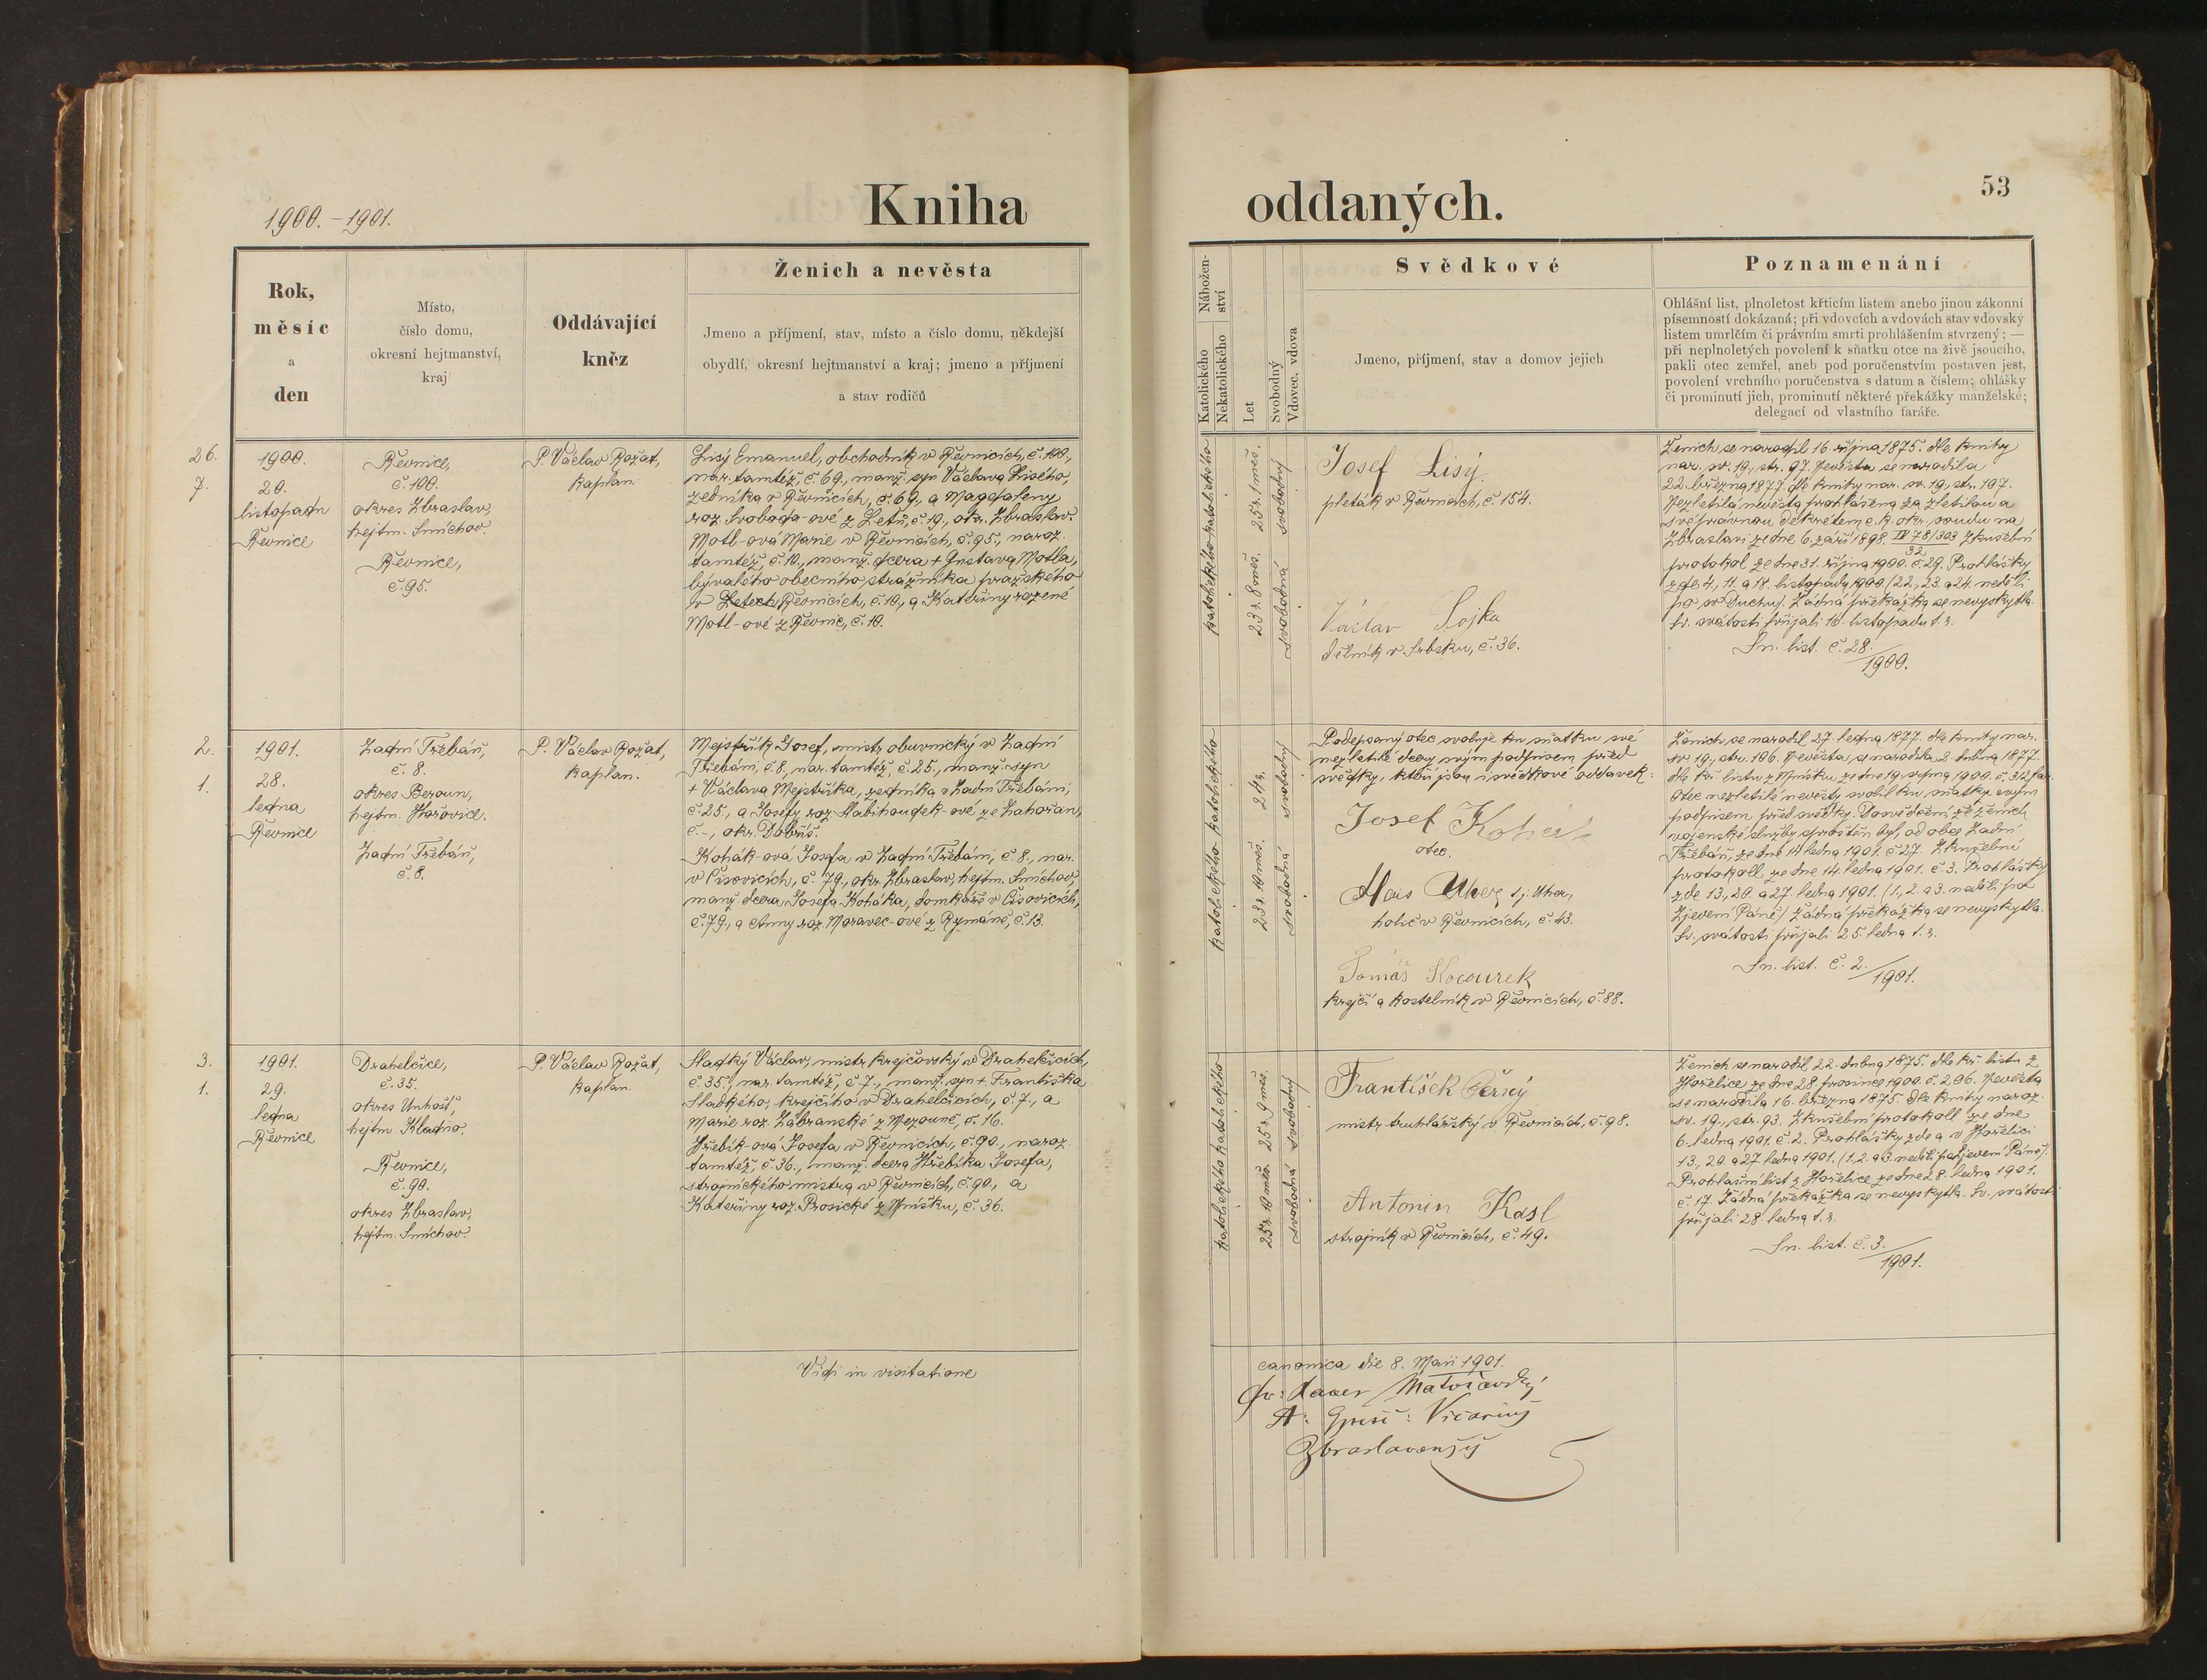 1900. - 1901.
Kniha
oddaných.
53
Rok,
měsíc
a
den
Místo,
číslo domu,
okresní hejtmanství,
kraj
Oddávající
kněz
Ženich a nevěsta
Jmeno a příjmení, stav, místo a číslo domu, někdejší
obydlí, okresní hejtmanství a kraj; jmeno a příjmení
a stav rodičů
Nábožen-
ství
Katolického
Nekatolického
Let
Svobodný
Vdovec, vdova
Svědkové
Jmeno, příjmení, stav a domov jejich
Poznamenání
Ohlášní list, plnoletost křticím listem anebo jinou zákonní
písemností dokázaná; při vdovcích a vdovách stav vdovský
listem umrlčím či právním smrti prohlášením stvrzený; —
při neplnoletých povolení k sňatku otce na živě jsoucího,
pakli otec zemřel, aneb pod poručenstvím postaven jest,
povolení vrchního poručenstva s datum a číslem; ohlášky
či prominutí jich, prominutí některé překážky manželské;
delegací od vlastního faráře.
26.
7.
1900.
20.
listopadu
Řevnice
Řevnice,
č. 100.
okres Zbraslav,
hejtm. Smíchov.
Řevnice,
č. 95.
P. Václav Rožat,
kaplan.
Lisý Emanuel, obchodník v Řevnicích, č. 100.,
nar. tamtéž, č. 69., manž. syn Václava Lisého,
zedníka v Řevnicích, č. 69., a Magdaleny
roz. Svoboda-ové z Letů, č. 19., okr. Zbraslav.
Motl-ová Marie v Řevnicích, č. 95., naroz.
tamtéž, č. 10., manž. dcera + Gustava Motla,
bývalého obecního strážníka pražského
v Letech, Řevnicích, č. 10., a Kateřiny rozené
Motl-ové z Řevnic, č. 10.
katolického katolického
23 r. 8 měs. 25 r. 1 měs.
svobodná svobodný
Josef Lisý
pleták v Řevnicích, č. 154.
Václav Sojka
dělník v Srbsku, č. 36.
Ženich se narodil 16. října 1875. dle knihy
nar. sv. 19., str. 97. Nevěsta se narodila
22. března 1877. dle knihy nar. sv. 19., str. 107.
Nezletilá nevěsta prohlášena za zletilou a
svéprávnou dekretem c. k. okr. soudu na
Zbraslavi ze dne 6. září 1898. IV 78/303 Zkušební
32
protokol ze dne 31. října 1900. č. 29. Prohlášky
zde 4., 11. a 18. listopadu 1900. (22., 23. a 24. neděli
po sv. Duchu). Žádná překážka se nevyskytla.
Sv. svátosti přijali 18. listopadu t. r.
Sn. list. č. 28.
1900.
2.
1.
1901.
28.
ledna
Řevnice
Zadní Třebáň,
č. 8.
okres Beroun,
hejtm. Hořovice.
Zadní Třebáň,
č. 8.
P. Václav Rožat,
kaplan.
Mejstřík Josef, mistr obuvnický v Zadní
Třebáni, č. 8., nar. tamtéž, č. 25., manž. syn
+ Václava Mejstříka, zedníka v Zadní Třebáni,
č. 25., a Josefy roz. Nabihoudek-ové ze Zahořan,
č. -, okr. Dobříš.
Kohák-ová Josefa v Zadní Třebáni, č. 8., nar.
v Čisovicích, č. 79., okr. Zbraslav, hejtm. Smíchov,
manž. dcera Josefa Koháka, domkáře v Čisovicích,
č. 79., a Anny roz. Moravec-ové z Rymáně, č. 13.
katolického katolického
23 r. 10 měs. 24 r.
svobodná svobodný
Podepsaný otec svoluje ku sňatku své
nezletilé dcery svým podpisem před
svědky, kteří jsou i svědkové oddavek:
Josef Kohák
otec.
Alois Uher t. j. Uher,
holič v Řevnicích, č. 43.
Tomáš Kocourek
krejčí a kostelník v Řevnicích, č. 88.
Ženich se narodil 27. ledna 1877. dle knihy nar.
sv. 19., str. 106. Nevěsta se narodila 2. dubna 1877.
dle kř. listu z Mníšku ze dne 19. srpna 1900. č. 312 far.
Otec nezletilé nevěsty svolil ku sňatku svým
podpisem před svědky. Dosvědčení, že ženich
vojenské služby sproštěn byl, od obce Zadní
Třebáň, ze dne 14. ledna 1901. č. 27. Zkušební
protokoll ze dne 14. ledna 1901. č. 3. Prohlášky
zde 13., 20. a 27. ledna 1901. (1., 2. a 3. neděli po
Zjevení Páně) Žádná překážka se nevyskytla.
Sv. svátosti přijali 25. ledna t. r.
Sn. list. č. 2.
1901.
3.
1.
1901.
29.
ledna
Řevnice
Drahelčice,
č. 35.
okres Unhošť,
hejtm. Kladno.
Řevnice,
č. 90.
okres Zbraslav,
hejtm. Smíchov.
P. Václav Rožat,
kaplan.
Sladký Václav, mistr krejčovský v Drahelčicích,
č. 35., nar. tamtéž, č. 7., manž. syn + Františka
Sladkého, krejčího v Drahelčicích, č. 7., a
Marie roz. Zábranské z Mezouně, č. 16.
Hřebík-ová Josefa v Řevnicích, č. 90., naroz.
tamtéž, č. 36., manž. dcera Hřebíka Josefa,
strojnického mistra v Řevnicích, č. 90., a
Kateřiny roz. Prosické z Mníšku, č. 36.
katolického katolického
25 r. 10 měs. 25 r. 9 měs.
svobodná svobodný
František Černý
mistr truhlářský v Řevnicích, č. 98.
Antonin Kasl
strojník v Řevnicích, č. 49.
Ženich se narodil 22. dubna 1875. dle kř. listu z
Hořelice ze dne 28. prosince 1900. č. 206. Nevěsta
se narodila 16. března 1875. dle knihy naroz.
sv. 19., str. 93. Zkušební protokoll ze dne
6. ledna 1901. č. 2. Prohlášky zde a v Hořelici
13., 20. a 27. ledna 1901. (1., 2. a 3. neděli po Zjevení Páně).
Prohlašní list z Hořelice ze dne 28. ledna 1901.
č. 17. Žádná překážka se nevyskytla. Sv. svátosti
přijali 28. ledna t. r.
Sn. list. č. 3.
1901.
Vidi in visitatione
canonica die 8. Maii 1901.
Fr: Xaver Matoušovský
Vicarius
Zbraslavensis